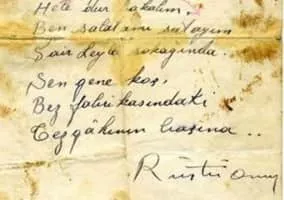 Hele dur bakalım.
Ben salatamı satayım
Şair Leylâ sokağında.
Sen gene koş,
Bez fabrikasındaki
Tezgâhının başına..
Rüştü Onur